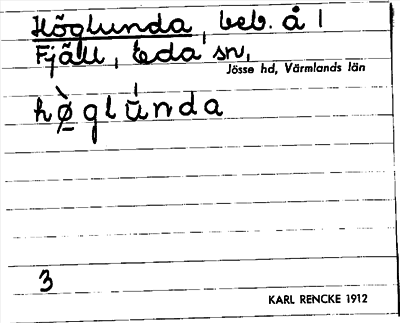 Höglunda, beb. å 1
Fjäll, Eda sn,
Jösse hd, Värmlands län
hø̀glúnda
3
KARL RENCKE 1912